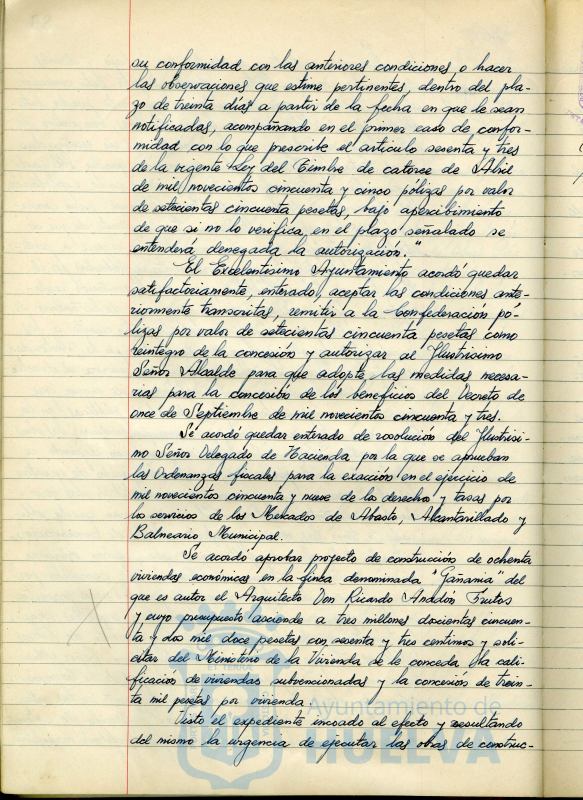 su conformidad con las anteriores condiciones o hacer
las observaciones que estime pertinentes, dentro del pla-
zo de treinta dias a partir de la fecha en que le sean
notificadas, acompañando en el primer caso de confor-
midad con lo que prescribe el articulo sesenta y tres
de la vigente Ley del Timbre de catorce de Abril
de mil novecientos cincuenta y cinco pólizas por valor
de setecientas cincuenta pesetas, bajo apercibimiento
de que si no lo verifica, en el plazo señalado se
entenderá denegada la autorización."
El Excelentisimo Ayuntamiento acordó quedar
satisfactoriamente, enterado, aceptar las condiciones ante-
riormente transcritas, remitir a la Confederación pó-
lizas por valor de setecientas cincuenta pesetas como
reintegro de la concesión y autorizar al Ilustrisimo
Señor Alcalde para que adopte las medidas necesa-
rias para la concesión de los beneficios del Decreto de
once de Septiembre de mil novecientos cincuenta y tres.
Sé acordó quedar enterado de resolución del Ilustrisi-
mo Señor Delegado de Hacienda por la que se aprueban
las Ordenanzas fiscales para la exacción en el ejercicio de
mil novecientos cincuenta y nueve de los derechos y tasas por
los servicios de los Mercados de Abasto, Alcantarillado y
Balneario Municipal.
Sé acordó aprobar proyecto de construcción de ochenta
viviendas económicas en la finca denominada "Gañania" del
que es autor el Arquitecto Don Ricardo Anadón Frutos
y cuyo presupuesto asciende a tres millones doscientas cincuen-
ta y dos mil doce pesetas con sesenta y tres centimos y soli-
citar del Ministerio de la Vivienda se le conceda la cali-
ficación de viviendas subvencionadas y la concesión de trein-
ta mil pesetas por vivienda.
Visto el expediente incoado al efecto y resultando
del mismo la urgencia de ejecutar las obras de construc-
Ayuntamiento de
HUELVA